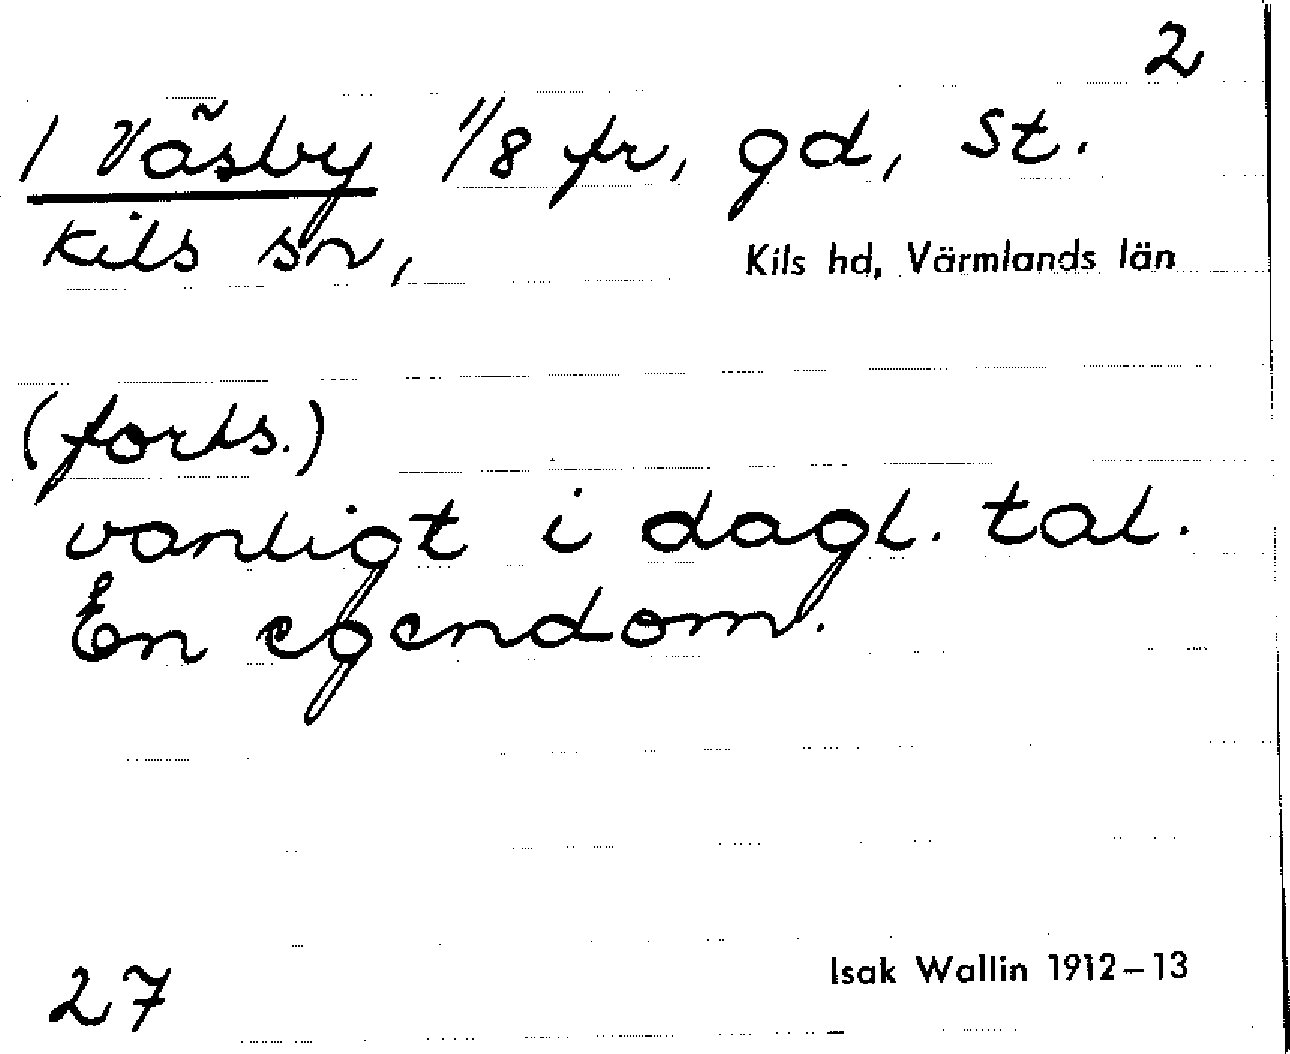 2
1 Väsby 1/8 fr, gd, St.
Kils sn,
Kils hd, Värmlands län
(forts.)
vanligt i dagl. tal.
En egendom.
Isak Wallin 1912–13
27